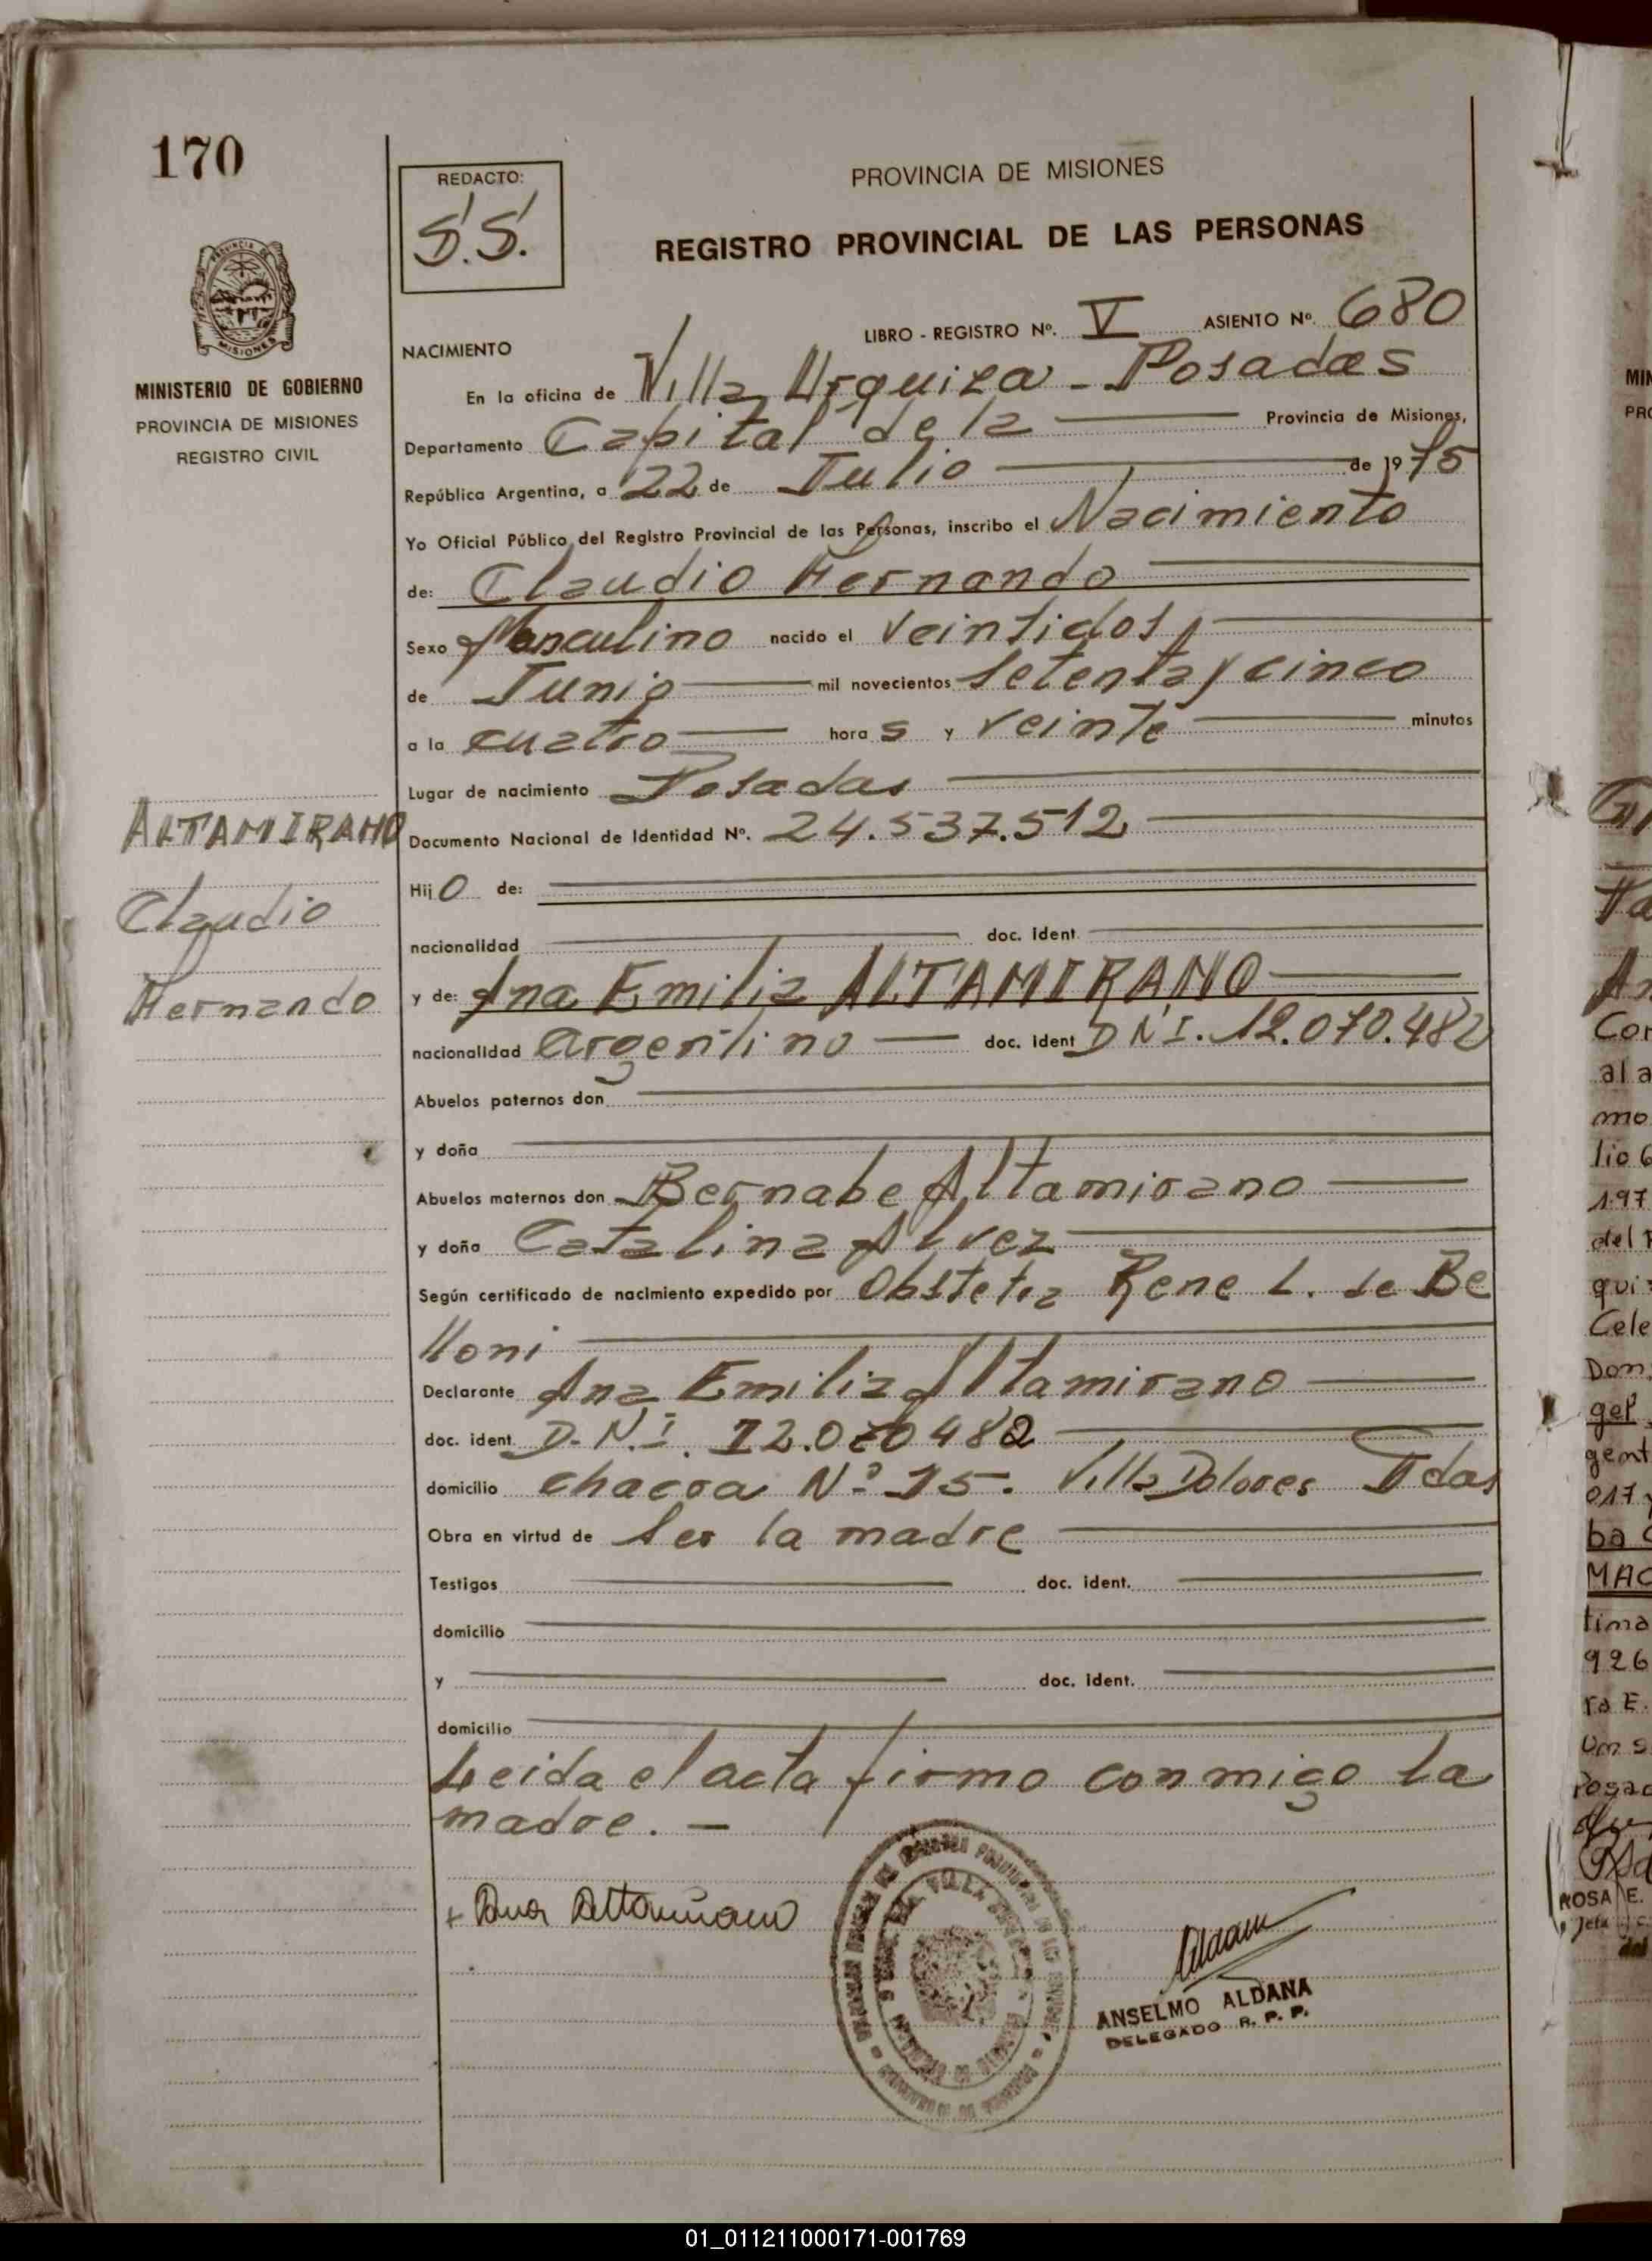 170
REDACTO:
S.S.
PROVINCIA DE MISIONES
REGISTRO PROVINCIAL DE LAS PERSONAS
PROVINCIA DE
MISIONES
MINISTERIO DE GOBIERNO
PROVINCIA DE MISIONES
REGISTRO CIVIL
LIBRO - REGISTRO Nº. V ASIENTO Nº. 680
NACIMIENTO
En la oficina de Villa Urquiza - Posadas
Departamento Capital de la Provincia de Misiones,
República Argentina, a 22 de Julio de 1975
Yo Oficial Público del Registro Provincial de las Personas, inscribo el Nacimiento
de: Claudio Hernando
Sexo Masculino nacido el veintidos
de Junio mil novecientos setenta y cinco
a la cuatro horas y veinte minutos
Lugar de nacimiento Posadas
ALTAMIRANO
Claudio
Hernando
Documento Nacional de Identidad Nº. 24.537.512
Hijo de:
nacionalidad doc. ident.
y de: Ana Emilia ALTAMIRANO
nacionalidad argentino doc. ident D N I. 12.070.482
Abuelos paternos don
y doña
Abuelos maternos don Bernabe Altamirano
y doña Catalina Alvez
Según certificado de nacimiento expedido por Obstetra Rene L. de Be
lloni
Declarante Ana Emilia Altamirano
doc. ident. D.N.I. 12.070482
domicilio chacra Nº 15. Villa Dolores Pdas
Obra en virtud de ser la madre
Testigos doc. ident.
domicilio
y doc. ident.
domicilio
Leida el acta firmo conmigo la
madre. -
+ Ana Altamirano
Aldana
ANSELMO ALDANA
DELEGADO R. P. P.
MIN
PRO
Cor
al a
mo
lio 6
197
del R
qui
Cele
Don
gel
gent
017
ba
MAC
tima
926
ra E.
Um s
Posad
ROSA E.
Jefa
01_011211000171-001769